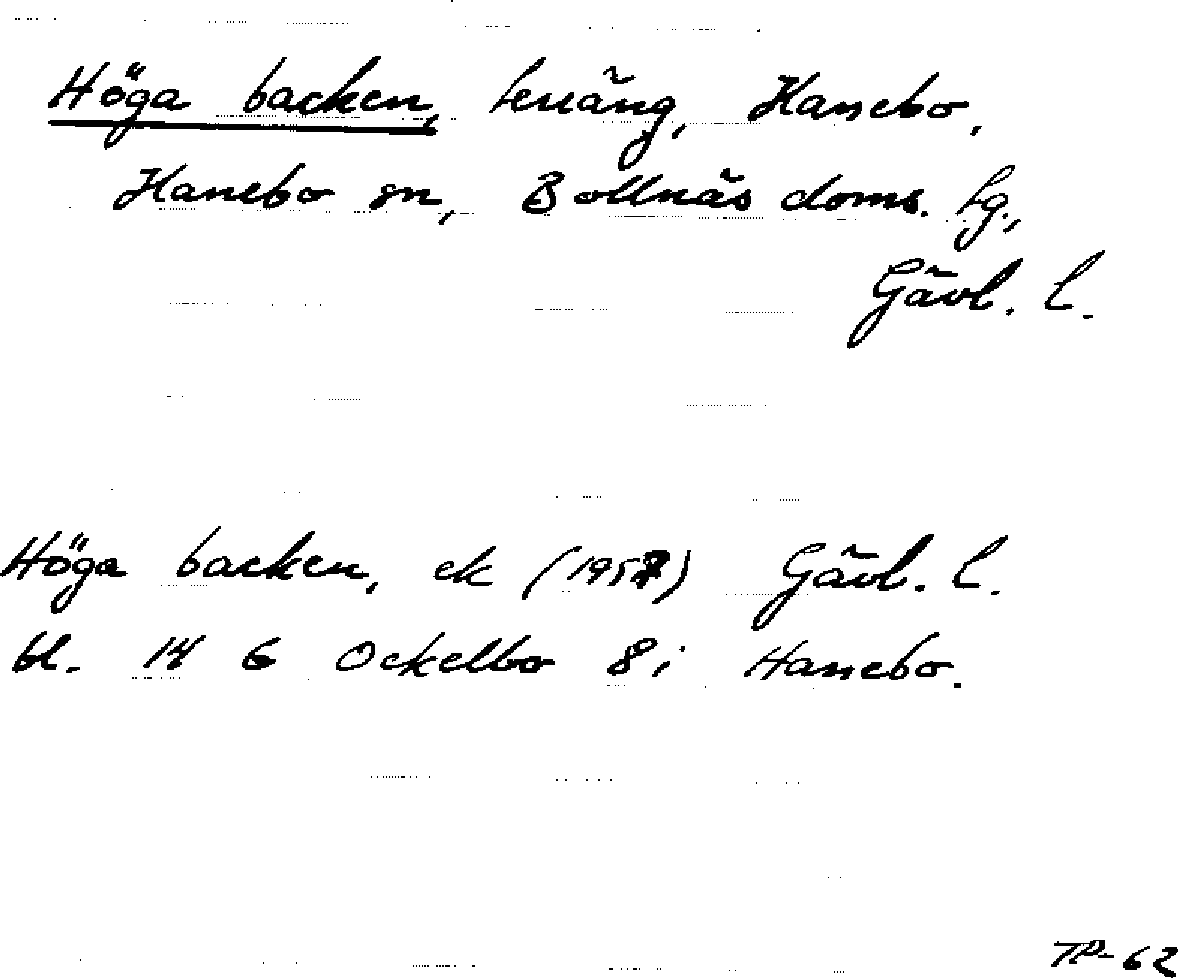 Höga backen, terräng, Hanebo,
Hanebo sn, Bollnäs doms. tg.,
Gävl. l.
Höga backen, ek (1957) Gävl. l.
bl. 14 G Ockelbo 8 i Hanebo.
TP-62